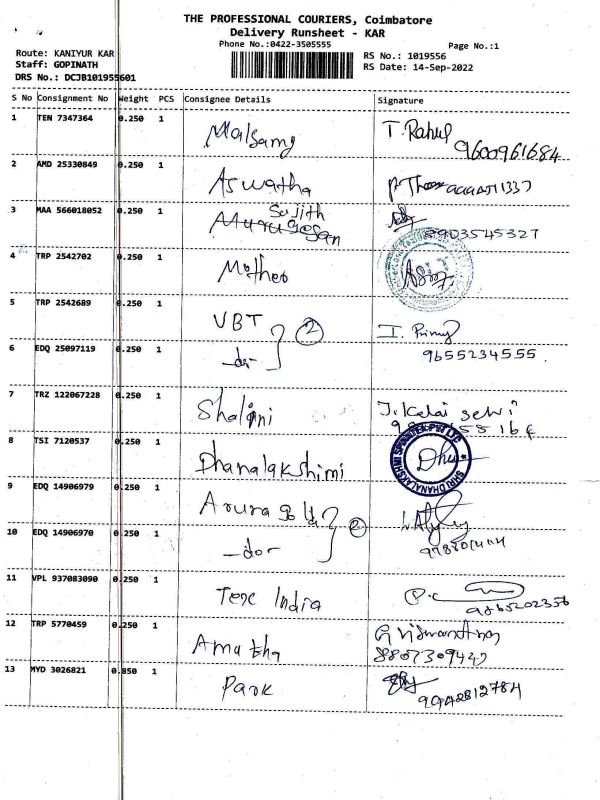 THE PROFESSIONAL COURIERS, Coimbatore
Delivery Runsheet - KAR
Phone No.:0422-3505555
Page No.:1
Route: KANIYUR KAR
Staff: GOPINATH
DRS No.: DCJB101955601
RS No.: 1019556
RS Date: 14-Sep-2022
S No Consignment No Weight PCS Consignee Details Signature
1 TEN 7347364 0.250 1 Malsamy T. Rahul
9600961684
2 AMD 25330849 0.250 1 Aswatha
3 MAA 566018052 0.250 1 Sujith
Murugesan 8903545327
4 TRP 2542702 0.250 1 Mother
5 TRP 2542689 0.250 1 VBT 2
6 EDQ 25097119 0.250 1 -do- 9655234555
7 TRZ 122067228 0.250 1 Shalini J. Kalai selvi
8 TSI 7120537 0.250 1 Dhanalakshimi
SHRI DHANALAKSHMI SPINNTEX PVT LTD
9 EDQ 14906979 0.250 1 2
10 EDQ 14906970 0.250 1 -do-
11 VPL 937083090 0.250 1 Texc India
9865202356
12 TRP 5770459 0.250 1 Amatha
8807309442
13 MYD 3026821 0.850 1 Park
9942812784